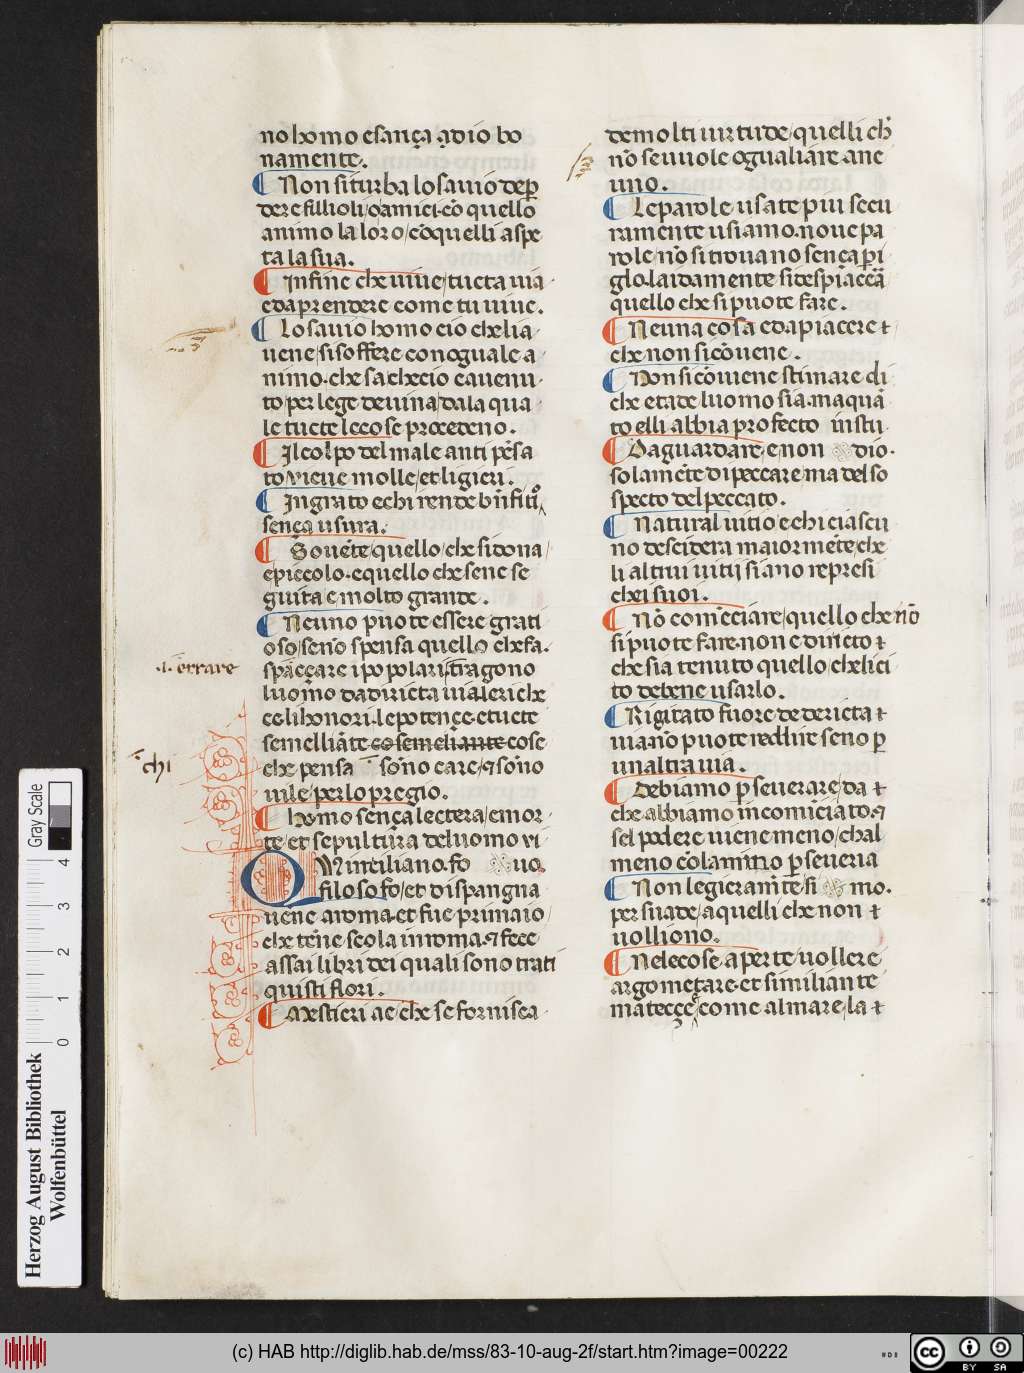 no homo esança adio bo
namente.
Non si turba lo savio de ꝑ
dere fillioli / o amici · cō quello
animo la loro / cōquelli aspe
ta la sua.
Infine che vive / tucta via
e da prendere come tu vive.
Lo savio homo cio che li a
vene / si soffere con oguale a
nimo · che sa che cio e avenu
to per lege devina / da la qua
le tucte le cose procedeno.
Il colpo del male anti pēsa
to viene molle / et ligieri.
Ingrato e chi rende
sença usura.
Sovēte / quello / che si dona /
e piccolo · e quello che sene se
guita e molto grande.
Neuno puote essere grati
oso / senō spensa quello che fa.
luomo da diricta via le riche
ce li honori · le potençe · e tucte
semelliāte cose semeliante cose
che pensa sōno care / ⁊ sōno
vile / per lo pregio.
homo sença lectera / e mor
te / et sepultura del uomo vi
Quinteiliano · fo vo
filosofo / et di spangna
vene a roma · et fue primaio /
che tēne scola in roma · ⁊ fece
assai libri dei quali sono trati
quisti flori.
Mestieri ae / che se fornisca
.i. errare
chi
de molti virtude / quelli ch̄
nō se vuole ogualiare ane
uno.
Le parole usate piu secu
ramente usiamo · nove pa
role / nō si trovano sença pi
glo · laidamente si despiacc̄a
quello che si puote fare.
Neuna cosa e da piacere ⁊
che non si cōvene.
Non si cōvene stimare di
che etade luomo sia · ma quā
to elli abbia profecto in stu
dio.
Da guardare / e non
solamēte di peccare / ma del so
specto del peccato.
Natural vitio e chi ciascu
no descidera maiormēte / che
li altrui vitij siano represi
che i suoi.
Nō comēciare / quello che nō
si puote fare · non e diricto ⁊
che sia tenuto quello / che lici
to debene usarlo.
Rigitato fuore de dericta ⁊
via · nō puote redure seno ꝑ
unaltra via.
Debiamo ꝑseverare / da ⁊
che abbiamo incomiciato · ⁊
sel podere viene meno / chal
meno cōlamino ꝑseveria
Non legieramēte si mo.
persuade / a quelli che non ⁊
volliono.
Nele cose aperte vollere
argometare · et similiante
mateççe / come al mare / la ⁊
Gray Scale
0 1 2 3 4
Herzog August Bibliothek
Wolfenbüttel
(c) HAB http://diglib.hab.de/mss/83-10-aug-2f/start.htm?image=00222
cc BY SA